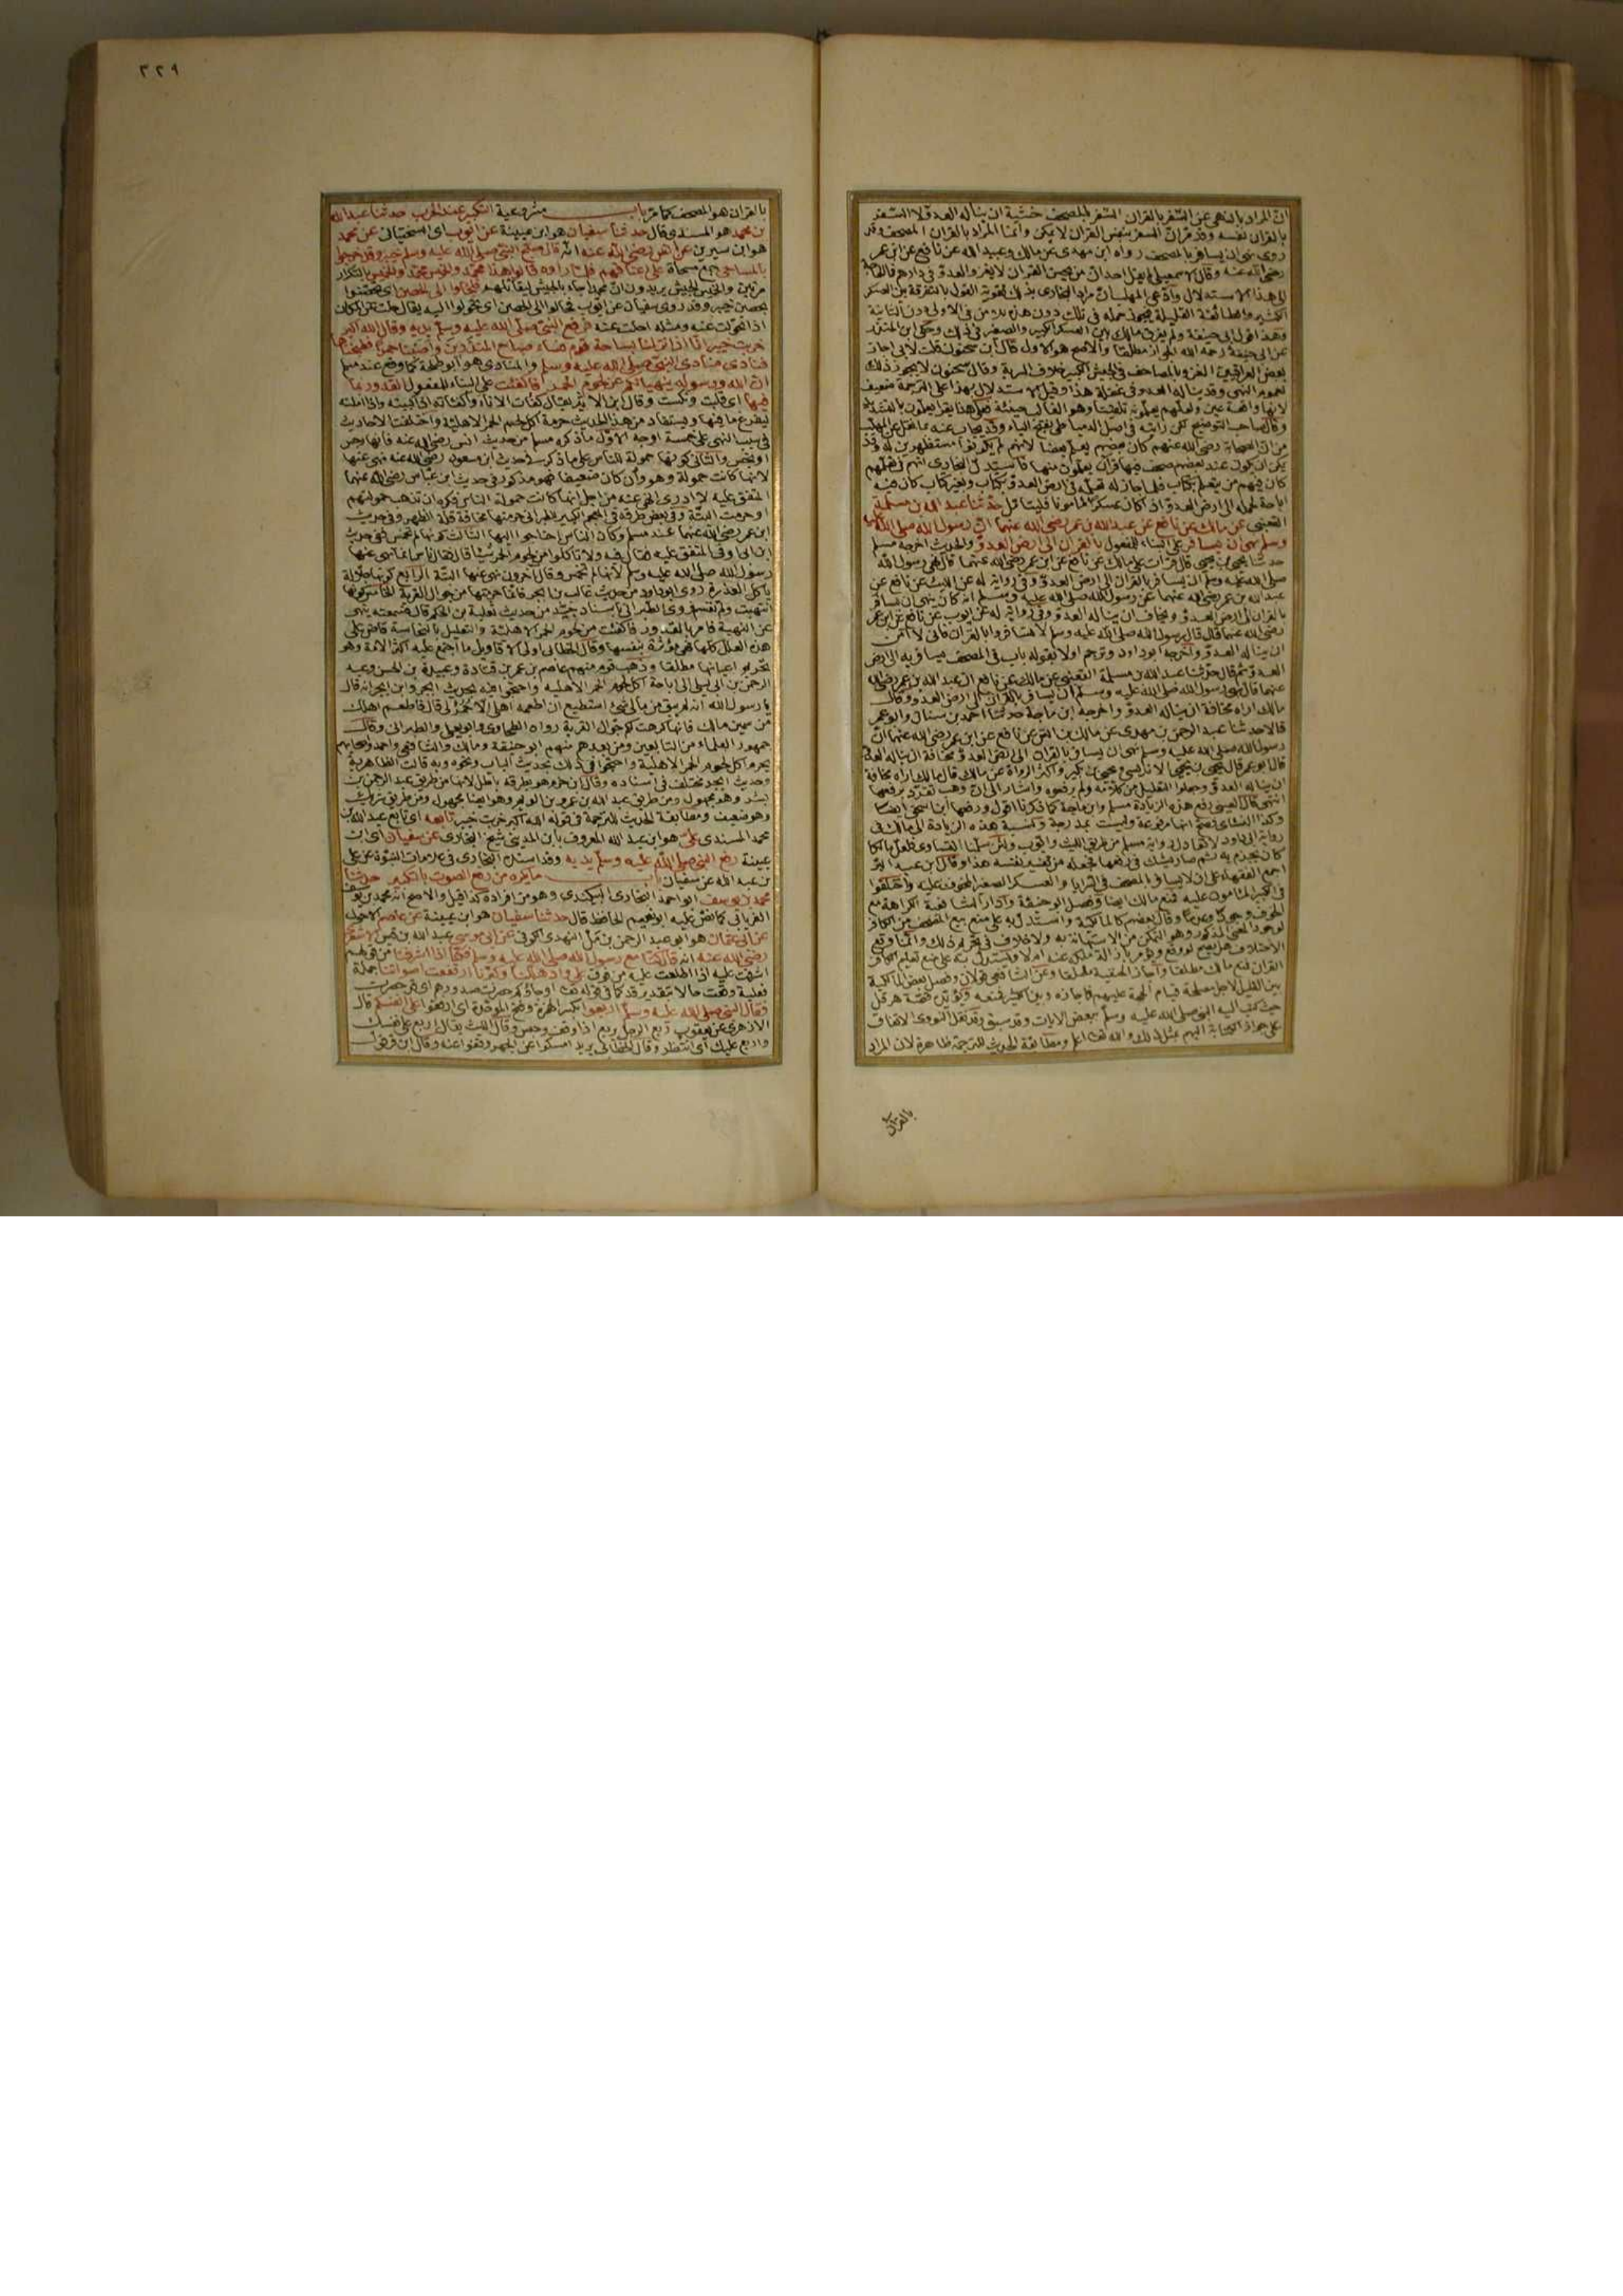 ان المراد بالنهي عن السفر بالقران السفر بالمصحف خشية ان يناله العدو لا السفر
بالقران نفسه وقد مر ان السفر بنفس القران لا يمكن وانما المراد بالقران المصحف وقد
روى نهى ان يسافر بالمصحف رواه ابن مهدى عن مالك وعبيد الله عن نافع عن ابن عمر
رضى الله عنه وقال الاسمعيلى لم يقل احد ان من يحسن القران لا يغزو العدو فى داره
لهذا الاستدلال وادعى المهلب ان مراد البخارى بذلك تقوية القول بالتفرقة بين العسكر
الكثير والطائفة القليلة فيجوز حمله فى تلك دون هذه
عن ابى حنيفة رحمه الله الجواز مطلقا والاصح هو الاول قال ابن سحنون قلت لابى اجاز
بعض العراقيين الغزو بالمصاحف فى الجيش الكبير خلاف السرية وقال سحنون لا يجوز ذلك
لعموم النهى وقد يناله العدو فى غفلة هذا وقيل الاستدلال بهذا على الترجمة ضعيف
من ان الصحابة رضى الله عنهم كان بعضهم يعلم بعضا لانهم لم يكونوا مستظهرين له وقد
يمكن ان يكون عند بعضهم صحف فيها قران يعلمون منها فاستدل البخارى انهم فى تعلمهم
كان فيهم من يتعلم بكتاب فلما جاز له تعلمه فى ارض العدو بكتاب وبغير كتاب كان فيه
اباحة لحمله الى ارض العدو اذا كان عسكرا مأمونا حدثنا عبد الله بن مسلمة
القعنبى عن مالك عن نافع عن عبد الله بن عمر رضى الله عنهما ان رسول الله صلى الله عليه
وسلم نهى ان يسافر على البناء للمفعول بالقران الى ارض العدو والحديث اخرجه مسلم
حدثنا يحيى بن يحيى قال قرأت على مالك عن نافع عن ابن عمر رضى الله عنهما قال نهى رسول الله
صلى الله عليه وسلم ان يسافر بالقران الى ارض العدو وفى رواية له عن الليث عن نافع عن
عبد الله بن عمر رضى الله عنهما عن رسول الله صلى الله عليه وسلم انه كان ينهى ان يسافر
بالقران الى ارض العدو ويخاف ان يناله العدو وفى رواية له عن ايوب عن نافع عن ابن عمر
رضى الله عنهما قال قال رسول الله صلى الله عليه وسلم لا تسافروا بالقران فانى لا آمن
ان يناله العدو واخرجه ابو داود وترجم اولا بقوله باب فى المصحف يسافر به الى ارض
العدو ثم قال حدثنا عبد الله بن مسلمة القعنبى عن مالك عن نافع ان عبد الله بن عمر رضى الله
عنهما قال نهى رسول الله صلى الله عليه وسلم ان يسافر بالقران الى ارض العدو وقال
مالك اراه مخافة ان يناله العدو واخرجه ابن ماجة حدثنا احمد بن سنان وابو عمر
قالا حدثنا عبد الرحمن بن مهدى عن مالك بن انس عن نافع عن ابن عمر رضى الله عنهما ان
رسول الله صلى الله عليه وسلم نهى ان يسافر بالقران الى ارض العدو مخافة ان يناله العدو
قال ابو عمر قال يحيى بن يحيى الاندلسى ويحيى بن بكير واكثر الرواة عن مالك قال مالك اراه مخافة
ان يناله العدو وجعلوا التعليل من كلامه ولم يرفعوه واشار الى ان ابن وهب تفرد برفعها
انتهى قال العينى رفع هذه الزيادة مسلم وابن ماجة كما ذكرنا اقول ورفعها ابن اسحق ايضا
كان يجزم به ثم صار يشك فى رفعها فجعله من تفسير نفسه هذا وقال ابن عبد البر
اجمع الفقهاء على ان لا يسافر بالمصحف فى السرايا والعسكر الصغير المخوف عليه واختلفوا
فى الكبير المأمون عليه فمنع مالك ايضا وفصل ابو حنيفة وادار الشافعية الكراهة مع
الخوف وجودا وعدما وقال بعضهم كالمالكية واستدل به على منع بيع المصحف من الكافر
لوجود المعنى المذكور وهو التمكن من الاستهانة به ولا خلاف فى تحريم ذلك وانما وقع
الاختلاف هل يصح لو وقع ويؤمر بازالة ملكه عنه ام لا واستدل به على منع تعليم الكافر
القران فمنع مالك مطلقا واجاز الحنفية مطلقا وعن الشافعى قولان وفصل بعض المالكية
بين القليل لاجل مصلحة قيام الحجة عليهم فاجازه وبين الكثير فمنعه ويؤيده قصة هرقل
حيث كتب اليه النبى صلى الله عليه وسلم ببعض الايات وقد سبق وقد نقل النووى الاتفاق
على جواز الكتابة اليهم بمثل ذلك والله تعالى اعلم ومطابقة الحديث للترجمة ظاهرة لان المراد
بالقران
٣٢٩
بالقران هو المصحف كما مر باب مشروعية التكبير عند الحرب حدثنا عبد الله
بن محمد هو المسندى قال حدثنا سفيان هو ابن عيينة عن ايوب اى السختيانى عن محمد
هو ابن سيرين عن انس رضى الله عنه انه قال صبح النبى صلى الله عليه وسلم خيبر وقد خرجوا
بالمساحى جمع مسحاة على اعناقهم فلما راوه قالوا هذا محمد والخميس محمد والخميس بالتكرار
مرتين والخميس الجيش يريدون ان محمدا جاء بالجيش ليقاتلهم فلجأوا الى الحصن اى تحصنوا
بحصن خيبر وقد روى سفيان عن ايوب فحالوا الى الحصن اى تحولوا اليه يقال حلت عن المكان
اذا تحولت عنه ومثله احلت عنه فرفع النبى صلى الله عليه وسلم يديه وقال الله اكبر
خربت خيبر انا اذا نزلنا بساحة قوم فساء صباح المنذرين واصبنا حمرا فطبخناها
فنادى منادى النبى صلى الله عليه وسلم والمنادى هو ابو طلحة كما وقع عند مسلم
ان الله ورسوله ينهيانكم عن لحوم الحمر فاكفئت على البناء للمفعول القدور بما
فيها اى قلبت ونكست وقال ابن الاثير يقال كفأت الاناء واكفأته اذا كببته واذا املته
ليفرغ ما فيها ويستفاد من هذا الحديث حرمة اكل لحم الحمر الاهلية واختلفت الاحاديث
فى سبب النهى على خمسة اوجه الاول ما ذكره مسلم من حديث انس رضى الله عنه فانها رجس
او نجس والثانى كونها حمولة للناس على ما ذكر فى حديث ابن مسعود رضى الله عنه نهى عنها
لانها كانت حمولة وهو وان كان ضعيفا فهو مذكور فى حديث ابن عباس رضى الله عنهما
المتفق عليه لا ادرى انهى عنه من اجل انها كانت حمولة الناس فكره ان تذهب حمولتهم
او حرمت البتة وفى بعض طرقه فى المعجم الكبير للطبرانى حرمتها مخافة قلة الظهر وفى حديث
ابن عمر رضى الله عنهما عند مسلم وكان الناس احتاجوا اليها الثالث كونها لم تخمس ففى حديث
رسول الله صلى الله عليه وسلم لانها لم تخمس وقال آخرون نهى عنها البتة الرابع كونها جلالة
تأكل العذرة روى ابو داود من حديث غالب بن ابجر فانما حرمتها من جوال القرية الخامس كونها
انتهبت ولم تقسم روى الطبرانى باسناد جيد من حديث ثعلبة بن الحكم قال فسمعته ينهى
عن النهبة فامر بالقدور فاكفئت من لحوم الحمر الاهلية والتعليل بالنجاسة قاض على
هذه العلل كلها فهى مؤثرة بنفسها وقال الخطابى اولى الاقاويل ما اجتمع عليه اكثر الامة وهو
تحريم اعيانها مطلقا وذهب قوم منهم عاصم بن عمر بن قتادة وعبيدة بن الحسن وعبد
الرحمن بن ابى ليلى الى اباحة اكل لحوم الحمر الاهلية واحتجوا فيه بحديث ابجر او ابن ابجر انه قال
يا رسول الله انه لم يبق من مالى شئ استطيع ان اطعمه اهلى الا حمر لى قال فاطعم اهلك
من سمين مالك فانما كرهت لكم جوال القرية رواه الطحاوى وابو يعلى والطبرانى وقال
جمهور العلماء من التابعين ومن بعدهم منهم ابو حنيفة ومالك والشافعى واحمد واصحابهم
يحرم اكل لحوم الحمر الاهلية واحتجوا فى ذلك بحديث الباب ونحوه وبه قالت الظاهرية
وحديث ابجر مختلف فى اسناده وقال ابن حزم هو بطرقه باطل لانها من طريق عبد الرحمن بن
بشر وهو مجهول ومن طريق عبد الله بن عمرو بن لويم وهو ايضا مجهول ومن طريق شريك
وهو ضعيف ومطابقة الحديث للترجمة فى قوله الله اكبر خربت خيبر تابعه اى تابع عبد الله بن
محمد المسندى على هو ابن عبد الله المعروف بابن المدينى شيخ البخارى عن سفيان اى ابن
عيينة رفع النبى صلى الله عليه وسلم يديه وقد اسنده البخارى فى علامات النبوة عن على
بن عبد الله عن سفيان باب ما يكره من رفع الصوت بالتكبير حدثنا
محمد بن يوسف ابو احمد البخارى البيكندى وهو من افراده كذا قيل والاصح انه محمد بن يوسف
الفريابى كما نص عليه ابو نعيم الحافظ قال حدثنا سفيان هو ابن عيينة عن عاصم الاحول
عن ابى عثمان هو ابو عبد الرحمن بن مل النهدى الكوفى عن ابى موسى عبد الله بن قيس الاشعرى
رضى الله عنه انه قال كنا مع رسول الله صلى الله عليه وسلم فكنا اذا اشرفنا من قولهم
اشرفت عليه اذا اطلعت عليه من فوق على واد هللنا وكبرنا ارتفعت اصواتنا جملة
فعلية وقعت حالا بتقدير قد كما فى قوله تعالى او جاؤكم حصرت صدورهم اى قد حصرت
فقال النبى صلى الله عليه وسلم اربعوا بكسر الهمزة وفتح الموحدة اى ارفقوا على انفسكم قال
الازهرى عن يعقوب ربع الرجل يربع اذا وقف وحبس وقال الليث يقال اربع على نفسك
واربع عليك اى انتظر وقال الخطابى يريد امسكوا عن الجهر وقفوا عنه وقال ابن قرقول